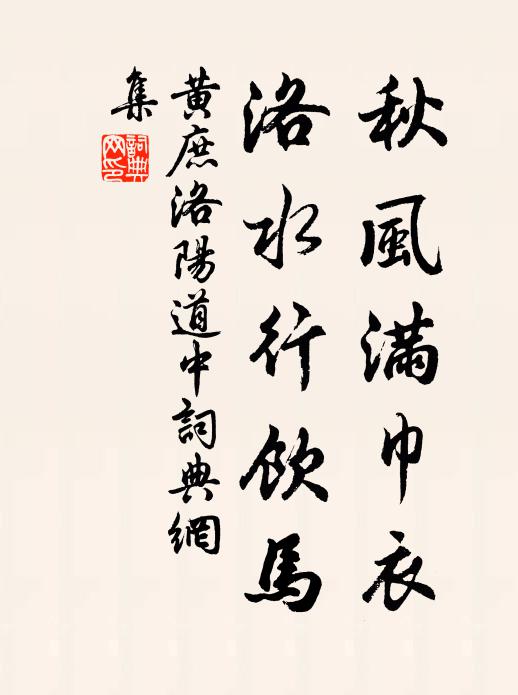 秋風滿巾衣
洛水行飲馬
黃庶洛陽道中詞典網
集
詞典
網印